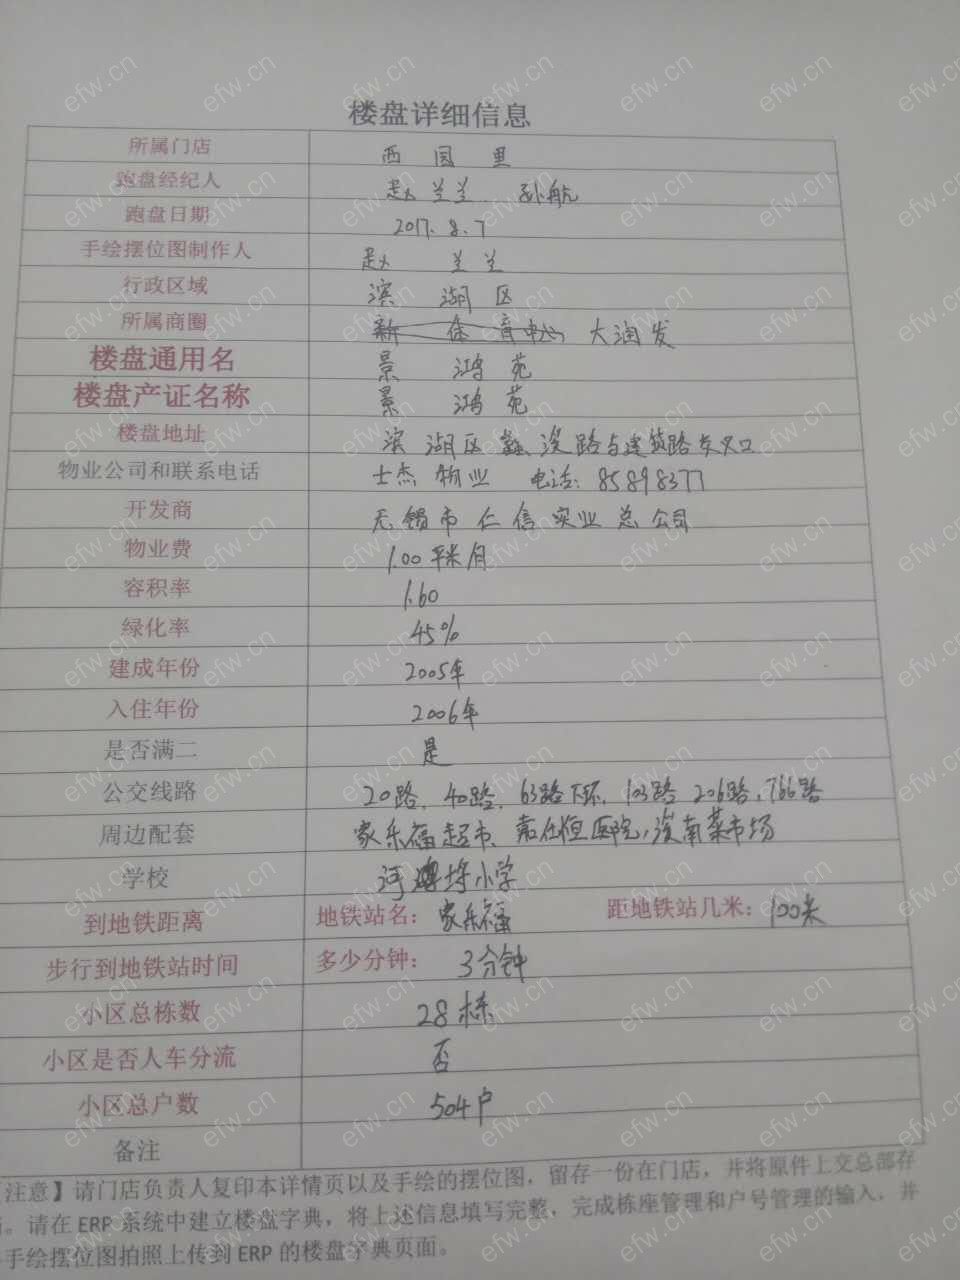 楼盘详细信息
所属门店 西园里
跑盘经纪人 赵兰兰 孙航
跑盘日期 2017.8.7
手绘摆位图制作人 赵兰兰
行政区域 滨湖区
所属商圈 新体育中心 大润发
楼盘通用名 景鸿苑
楼盘产证名称 景鸿苑
楼盘地址 滨湖区蠡溪路与建筑路交叉口
物业公司和联系电话 士杰物业 电话:85898377
开发商 无锡市仁信实业总公司
物业费 1.00平米/月
容积率 1.60
绿化率 45%
建成年份 2005年
入住年份 2006年
是否满二 是
公交线路 20路、40路、63路下环、103路 206路,766路
周边配套 家乐福超市、嘉仕恒医院,溪南菜市场
学校 河埒小学
到地铁距离 地铁站名: 家乐福 距地铁站几米: 100米
步行到地铁站时间 多少分钟: 3分钟
小区总栋数 28栋
小区是否人车分流 否
小区总户数 504户
备注
注意】请门店负责人复印本详情页以及手绘的摆位图，留存一份在门店，并将原件上交总部存
。请在 ERP 系统中建立楼盘字典，将上述信息填写完整，完成栋座管理和户号管理的输入，并
手绘摆位图拍照上传到 ERP 的楼盘字典页面。
efw.cn